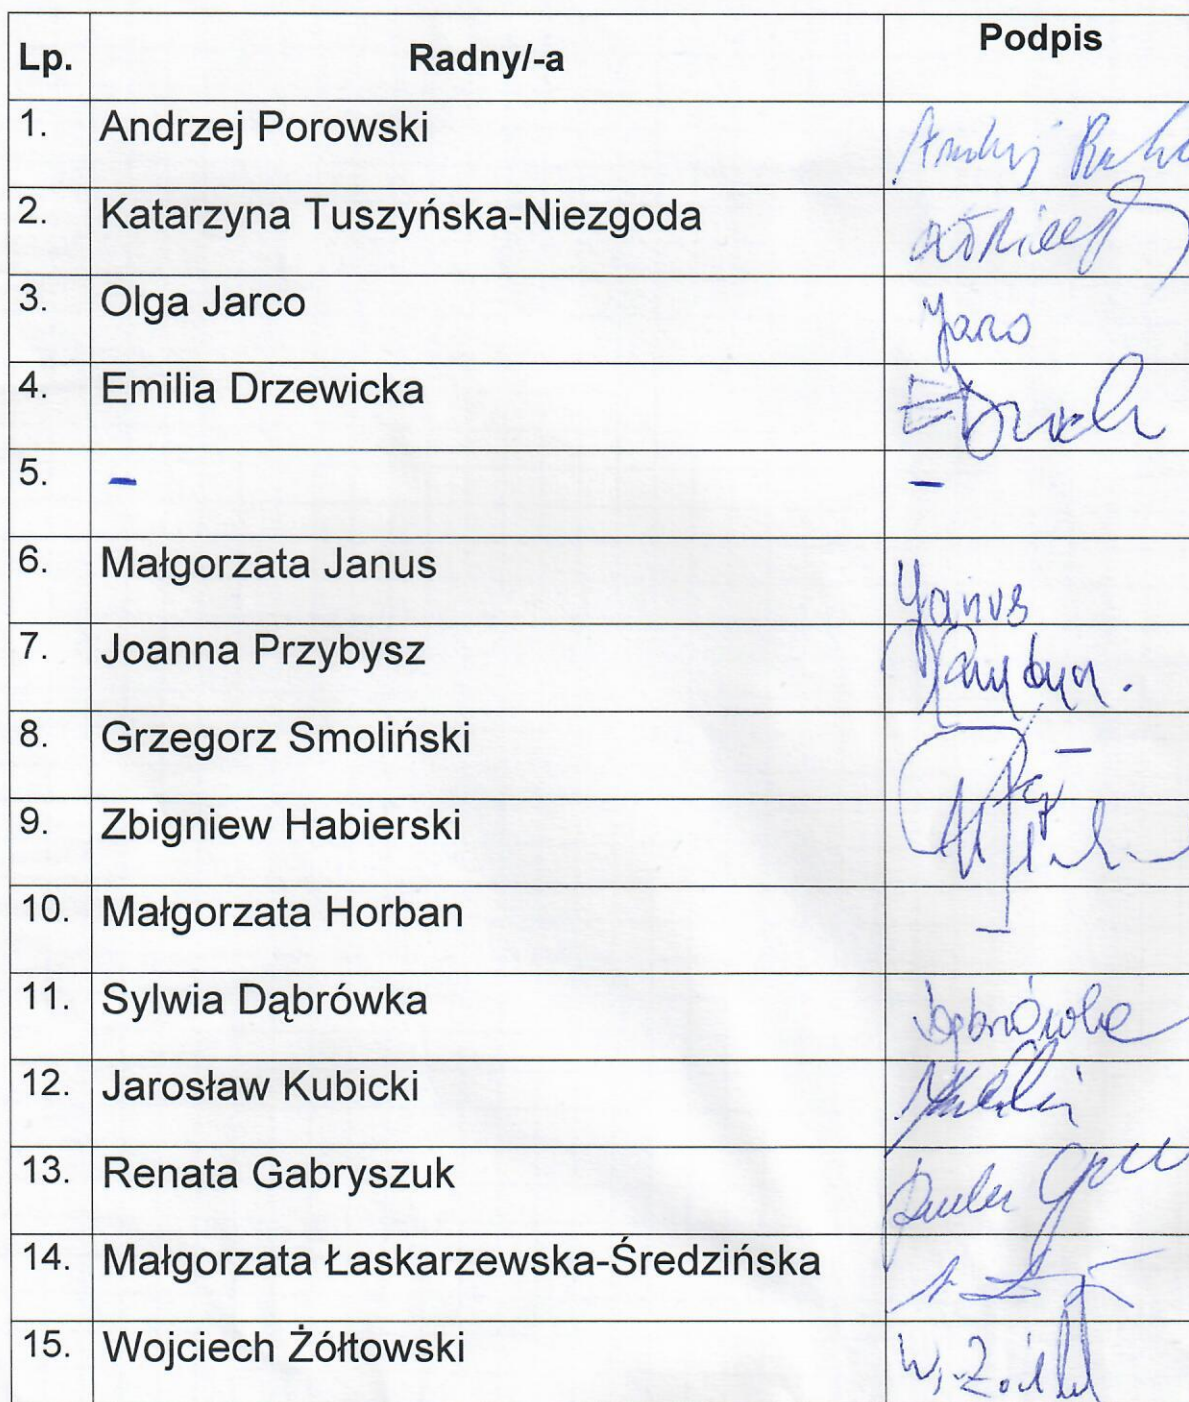 Lp. Radny/-a Podpis
1. Andrzej Porowski
2. Katarzyna Tuszyńska-Niezgoda
3. Olga Jarco
4. Emilia Drzewicka
5. – –
6. Małgorzata Janus Janus
7. Joanna Przybysz
8. Grzegorz Smoliński
9. Zbigniew Habierski
10. Małgorzata Horban
11. Sylwia Dąbrówka Dąbrówka
12. Jarosław Kubicki
13. Renata Gabryszuk
14. Małgorzata Łaskarzewska-Średzińska
15. Wojciech Żółtowski